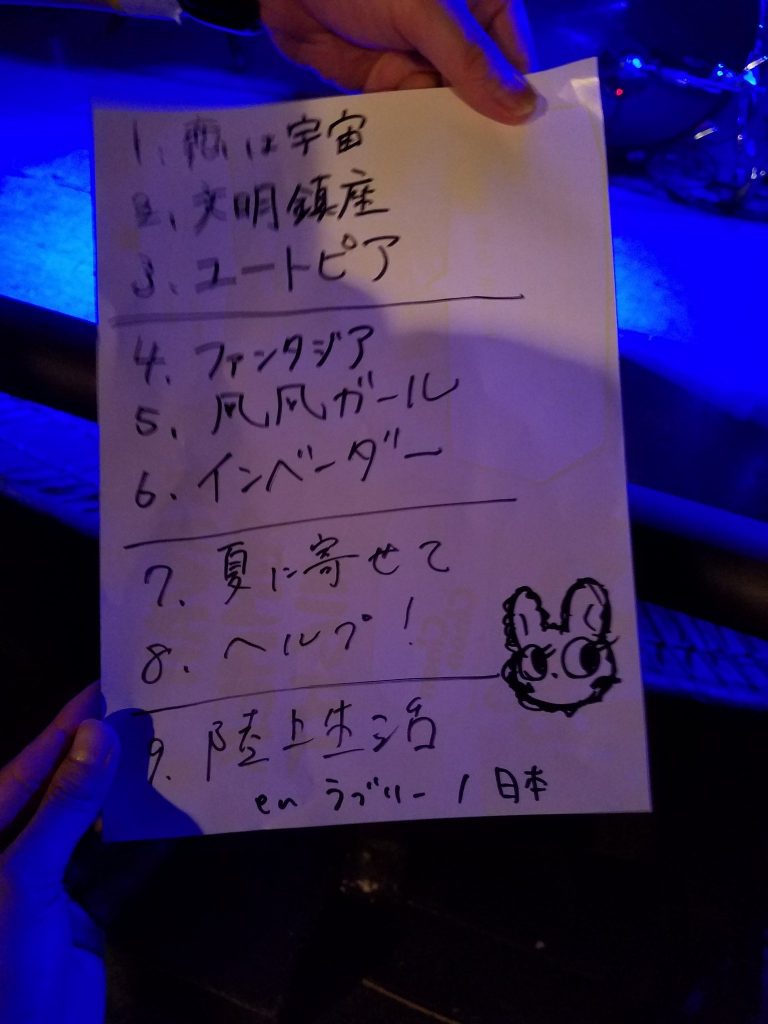 1. は宇宙
2. 文明鎮座
3. ユートピア
4. ファンタジア
5. 风风ガール
6. インベーダー
7. 夏に寄せて
8. ヘルプ!
9. 陸上生活
en ラブリー / 日本